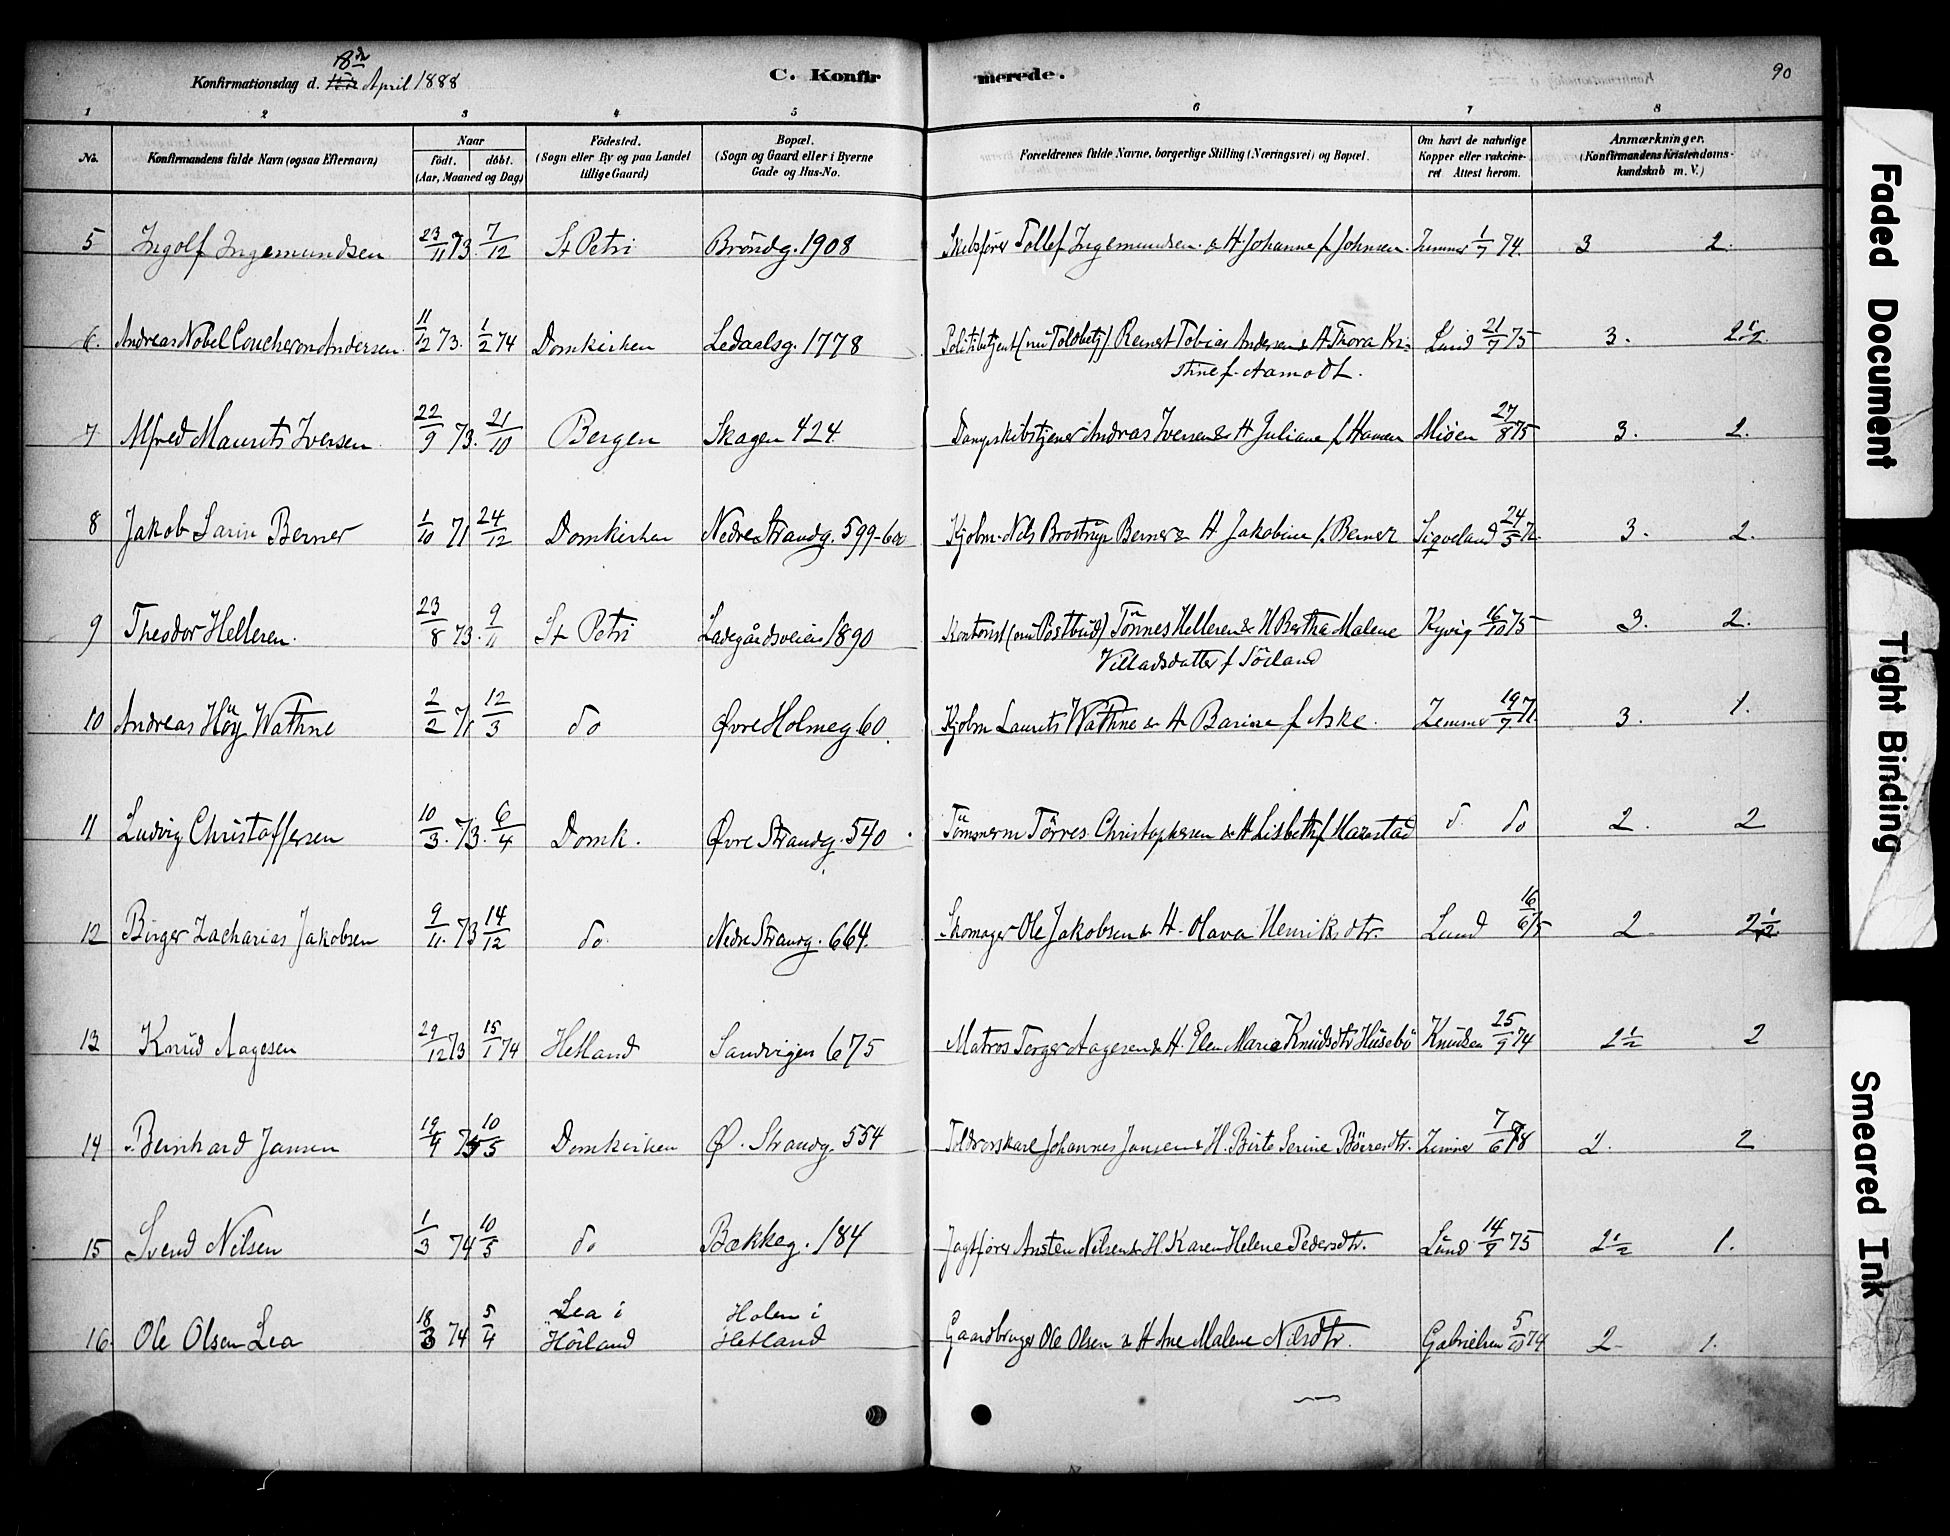 Konfirmationsdag d. 8de April 1888
C. Konfirmerede.
90
1 2 3 4 5 6 7 8
No.
Konfirmandens fulde Navn (ogsaa Efternavn)
Naar
födt. döbt.
(Aar, Maaned og Dag)
Födested.
(Sogn eller By og paa Landet
tillige Gaard)
Bopæl.
(Sogn og Gaard eller i Byerne
Gade og Hus-No.
Forældrenes fulde Navne, borgerlige Stilling (Næringsvei) og Bopæl.
Om havt de naturlige
Kopper eller vakcine-
ret Attest herom.
Anmærkninger.
(Konfirmandens Kristendoms-
kundskab m. V.)
5 Ingolf Ingemundsen 23/11 73. 7/12 St Petri Bröndg. 1908 Skibsfører Tollef Ingemundsen & H. Johanne f Johnsen. Zimmer 1/7 74. 3 2.
6. Andreas Nobel Coucheron Andersen. 11/12 73. 1/2 74 Domkirken Ledaalsg. 1778 Politibetjent (nu Toldbetj) Reinert Tobias Andersen & H Thora Kri=
stine f. Aamodt. Lund 21/7 75 3. 2 1/2.
7 Alfred Maurits Iversen 22/9 73. 21/10 Bergen Skagen 424 Dampskibstjener Andreas Iversen & H Juliane f Hansen Miöen 27/8 75 3. 2.
8 Jakob Sarin Berner 1/10 71 24/12 Domkirken Nedre Strandg. 599-600 Kjöbm. Nils Broström Berner & H Jakobine f. Berner Siqveland 24/5 72. 3. 2.
9 Theodor Helleren. 23/8 73. 9/11 St Petri Ladegårdsveien 1890 Kontorist (nu Postbud) Tönnes Helleren & H Bertha Malene
Villadsdatter f Sörland Kyvig 16/10 75 3. 2.
10 Andreas Höy Wathne 2/2 71 12/3 do Øvre Holmeg 60. Kjöbm Laurits Wathne & H Barine f Aske. Zemmer 19/7 71. 3. 1.
11 Ludvig Christoffersen 10/3. 73. 6/4 Domk. Øvre Strandg. 540 Tömmerm Törres Christophersen & H Lisbeth f Harestad d. do 2. 2
12 Birger Zacharias Jakobsen 9/11. 73 14/12 do. Nedre Strandg. 664. Skomager Ole Jakobsen & H. Olava Henriksdtr. Lund 16/6 75 2 2 1/2.
13 Knud Aagesen 29/12 73 15/1 74 Hetland Sandvigen 675 Matros Torger Aagesen & H. Elen Marie Knudsdtr Husebö Knudsen 25/9 74 2 1/2 2
14 Bernhard Jansen 19/4 73 10/5 Domkirken Ø. Strandg. 554 Toldvorskarl Johannes Jansen & H. Birte Serine Böresdtr. Zimmer 7/6 78 2. 2
15 Svend Nilsen 1/3 74 10/5 do Bakkeg. 184 Jagtfører Austen Nilsen & H. Karen Helene Pedersdtr. Lund 14/9 75 2 1/2 1.
16 Ole Olsen Lea 18/3 74 5/4 Lea i
Höiland Holen i
Hetland Gaardbruger Ole Olsen & H Ane Malene Nilsdtr. Gabrielsen 5/10 74 2 1.
Faded Document
Tight Binding
Smeared Ink